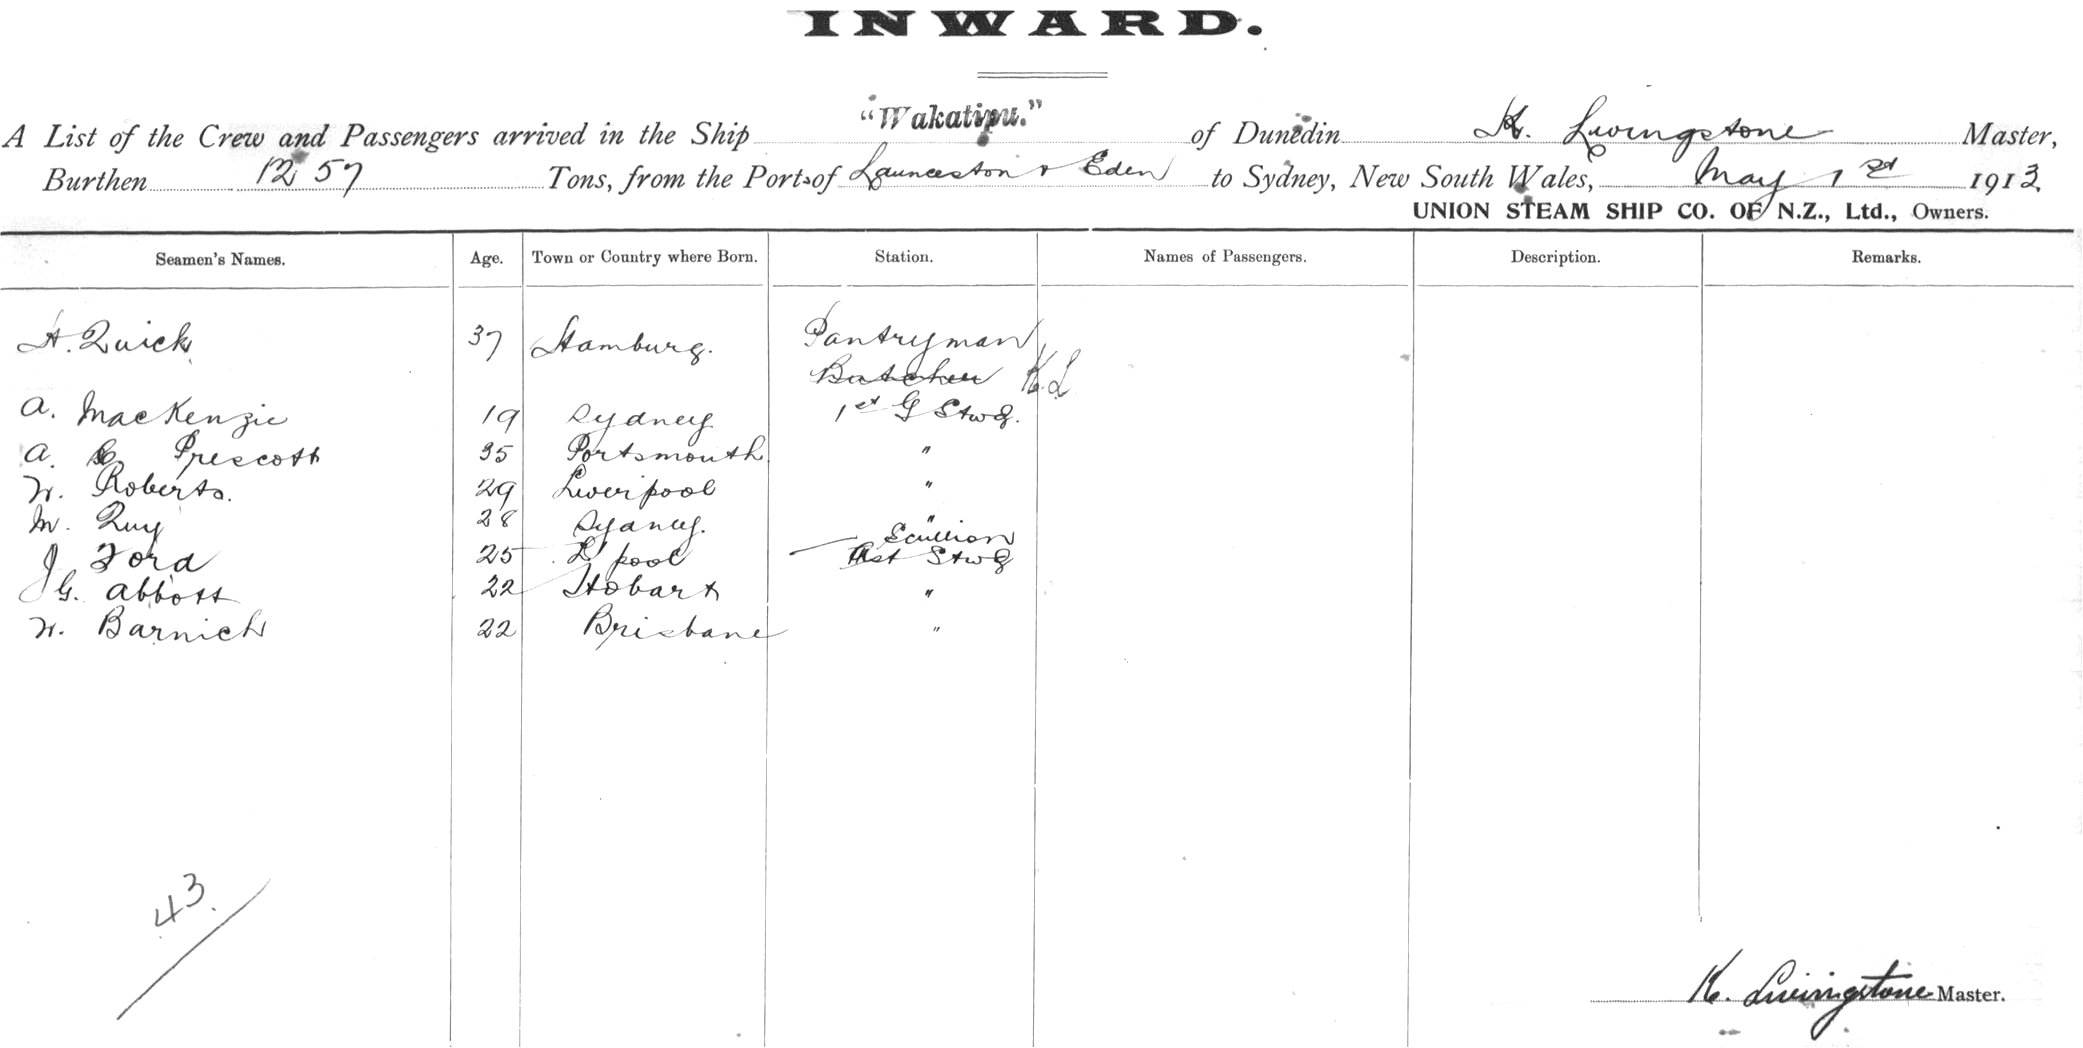 INWARD.
A List of the Crew and Passengers arrived in the Ship "Wakatipu." of Dunedin K. Livingstone Master,
Burthen 1257 Tons, from the Ports of Launceston & Eden to Sydney, New South Wales, May 1st 1913
UNION STEAM SHIP CO. OF N.Z., Ltd., Owners.
Seamen's Names. Age. Town or Country where Born. Station. Names of Passengers. Description. Remarks.
H. Quick 37 Hamburg. Pantryman
Butcher K.L
A. MacKenzie 19 Sydney 1st G Stwd.
A. Prescott 35 Portsmouth "
W. Roberts. 29 Liverpool "
M. Quy 28 Sydney. "
Scullion
J Ford 25 L'pool Asst Stwd
G. Abbott 22 Hobart "
W. Barnich 22 Brisbane "
43.
K. Livingstone Master.